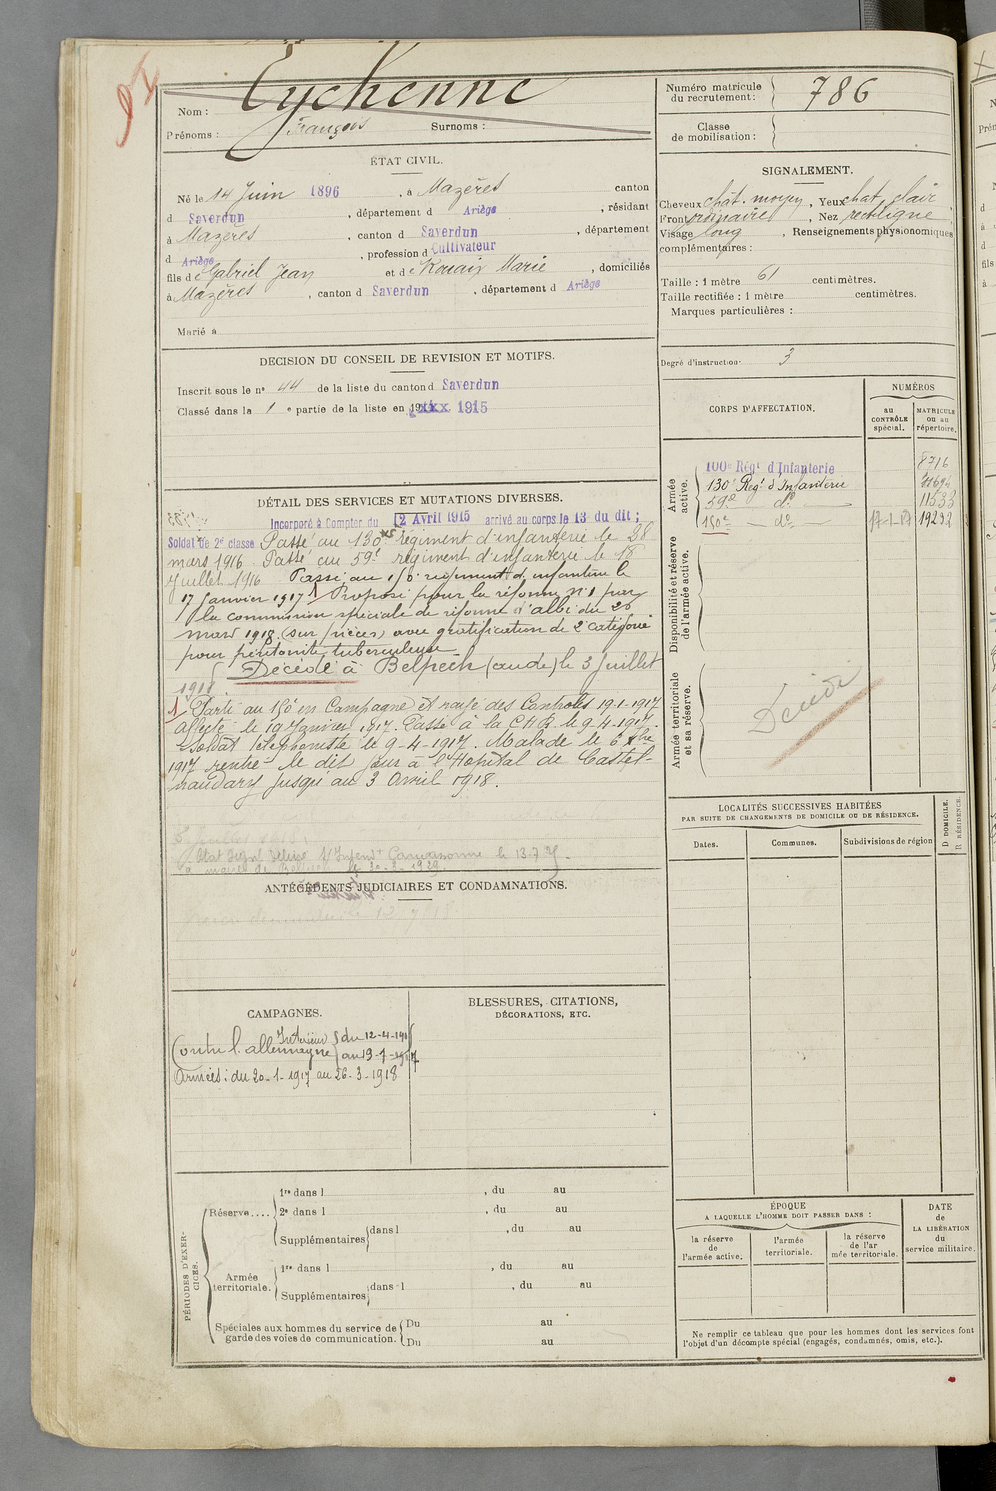 Nom : Eychenne
Prénoms : François Surnoms :
Numéro matricule du recrutement : 786
Classe de mobilisation :
ÉTAT CIVIL.
Né le 14 Juin 1896, à Mazères canton
d Saverdun, département d Ariège, résidant
à Mazères, canton d Saverdun, département
d Ariège, profession d Cultivateur
fils de Gabriel Jean et de Rouaix Marie, domiciliés
à Mazères, canton d Saverdun, département d Ariège
Marié à
SIGNALEMENT.
Cheveux chât. moyen, Yeux chat. clair
Front ordinaire, Nez rectiligne
Visage long, Renseignements physionomiques
complémentaires :
Taille : 1 mètre 61 centimètres.
Taille rectifiée : 1 mètre centimètres.
Marques particulières :
Degré d'instruction : 3
DECISION DU CONSEIL DE REVISION ET MOTIFS.
Inscrit sous le n° 44 de la liste du canton d Saverdun
Classé dans la 1 e partie de la liste en 1915
CORPS D'AFFECTATION.
NUMÉROS
au CONTRÔLE spécial.
MATRICULE ou au répertoire.
Armée active.
100e Régt d'Infanterie 8716
130e Regt d'Infanterie
59e do 11533
150e do 17-1-17 19292
Disponibilité et réserve de l'armée active.
Armée territoriale et sa réserve.
Décédé
DÉTAIL DES SERVICES ET MUTATIONS DIVERSES.
Incorporé à Compter du 12 Avril 1915 arrivé au corps le 13 du dit ;
Soldat de 2e classe Passé au 130e régiment d'infanterie le 28
mars 1916. Passé au 59e régiment d'infanterie le 18
Juillet 1916. Passé au 150e régiment d'infanterie le
17 Janvier 1917 1 Proposé pour la réforme n° 1 par
la commission spéciale de réforme d'Albi du 26
mars 1918 (sur pièces) avec gratification de 2e catégorie
pour péritonite tuberculeuse
Décédé à Belpech (aude) le 3 Juillet
1918.
1 Parti au 150e en Campagne et rayé des Contrôles 19-1-1917
affecté le 19 Janvier 1917. Passé à la CHR le 9-4-1917.
Soldat téléphoniste le 9-4-1917. Malade le 6 xbre
1917 rentré le dit jour à l'Hôpital de Castel-
naudary jusqu'au 3 Avril 1918.
LOCALITÉS SUCCESSIVES HABITÉES
PAR SUITE DE CHANGEMENTS DE DOMICILE OU DE RÉSIDENCE.
Dates. Communes. Subdivisions de région
D DOMICILE. R RÉSIDENCE.
ANTÉCÉDENTS JUDICIAIRES ET CONDAMNATIONS.
CAMPAGNES.
Contre l'allemagne Intérieur du 12-4-1915
au 19-1-1917
Armées : du 20-1-1917 au 26-3-1918
BLESSURES, CITATIONS,
DÉCORATIONS, ETC.
PÉRIODES D'EXERCICES.
Réserve....
1re dans l , du au
2e dans l , du au
Supplémentaires dans l , du au
Armée territoriale.
1re dans l , du au
Supplémentaires dans l , du au
Spéciales aux hommes du service de garde des voies de communication.
Du au
Du au
ÉPOQUE
A LAQUELLE L'HOMME DOIT PASSER DANS :
la réserve de l'armée active.
l'armée territoriale.
la réserve de l'armée territoriale.
DATE de LA LIBÉRATION du service militaire.
Ne remplir ce tableau que pour les hommes dont les services font
l'objet d'un décompte spécial (engagés, condamnés, omis, etc.).